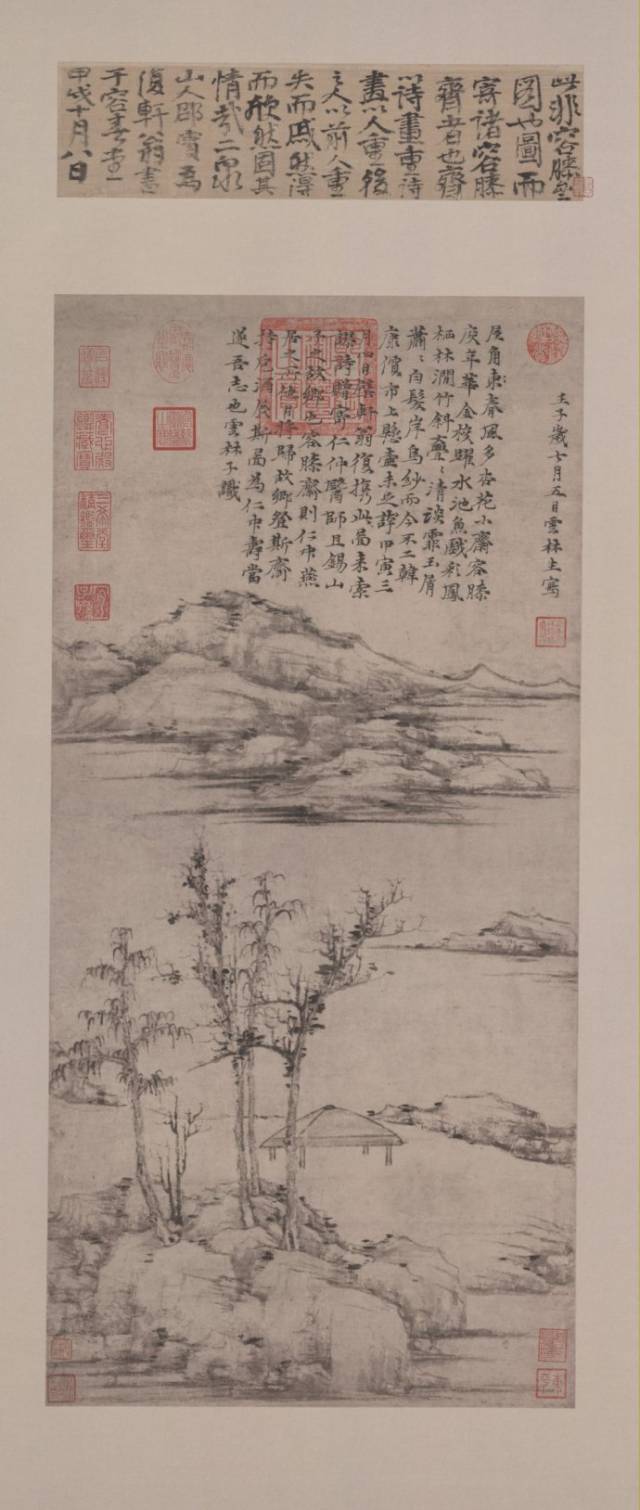 此非容膝室
圖也圖而
寄諸容膝
齋者也齋
以詩畫重詩
畫以人重後
之人以前人重
失而戚然得
而欣然固其
情哉二泉
山人邵寶爲
復軒翁書
于容春堂
甲戌十月八日
壬子歲七月五日雲林生寫
屋角東風多杏花小齋容膝
度年華金梭躍水池魚戲彩鳳
栖林澗竹斜亹亹清談霏玉屑
蕭蕭白髮岸烏紗而今不二韓
康價市上懸壺未足誇甲寅三
月四日檗軒翁復携此圖來索
謬詩贈寄仁仲醫師且錫山
予之故鄉也容膝齋則仁仲燕
居之所他日將歸故鄉登斯齋
持巵酒展斯圖爲仁仲壽當
遂吾志也雲林子識